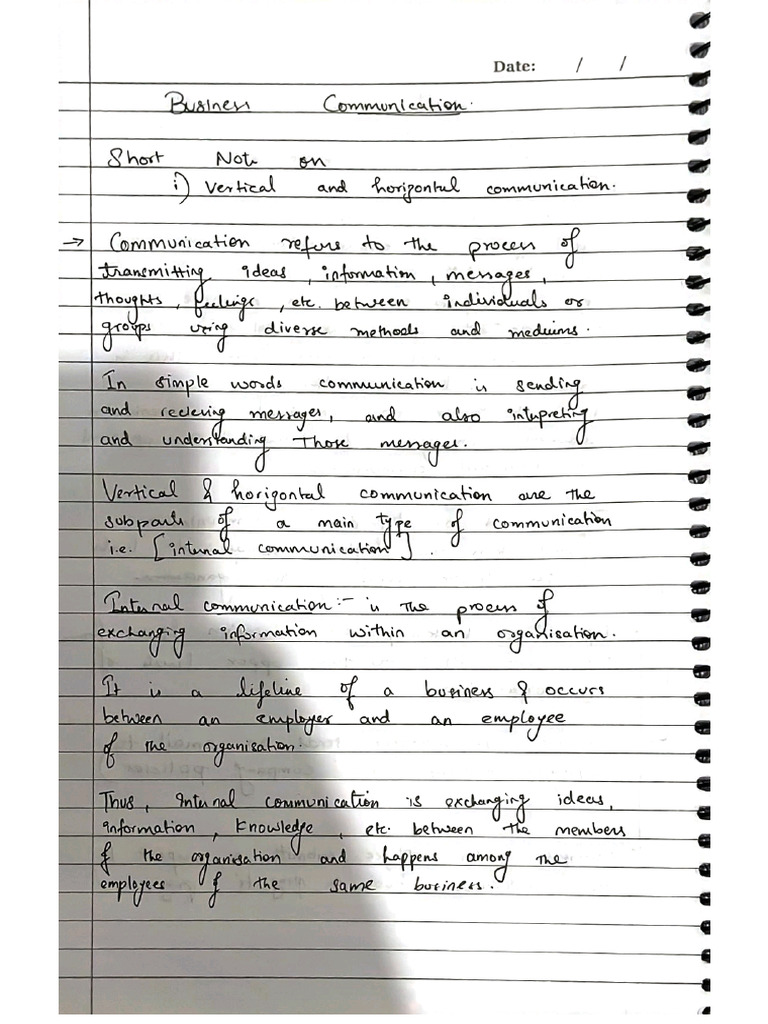 Date: / /
Business Communication.
Short Note on
i) Vertical and horizontal communication.
→ Communication refers to the process of
transmitting ideas, information, messages,
thoughts, feelings, etc. between individuals or
groups using diverse methods and mediums.
In simple words communication is sending
and recieving messages, and also intepreting
and understanding those messages.
Vertical & horizontal communication are the
subparts of a main type of communication
i.e. [internal communication].
Internal communication:- is the process of
exchanging information within an organisation.
It is a lifeline of a business & occurs
between an employer and an employee
of the organisation.
Thus, internal communication is exchanging ideas,
information, knowledge, etc. between the members
of the organisation and happens among the
employees of the same business.